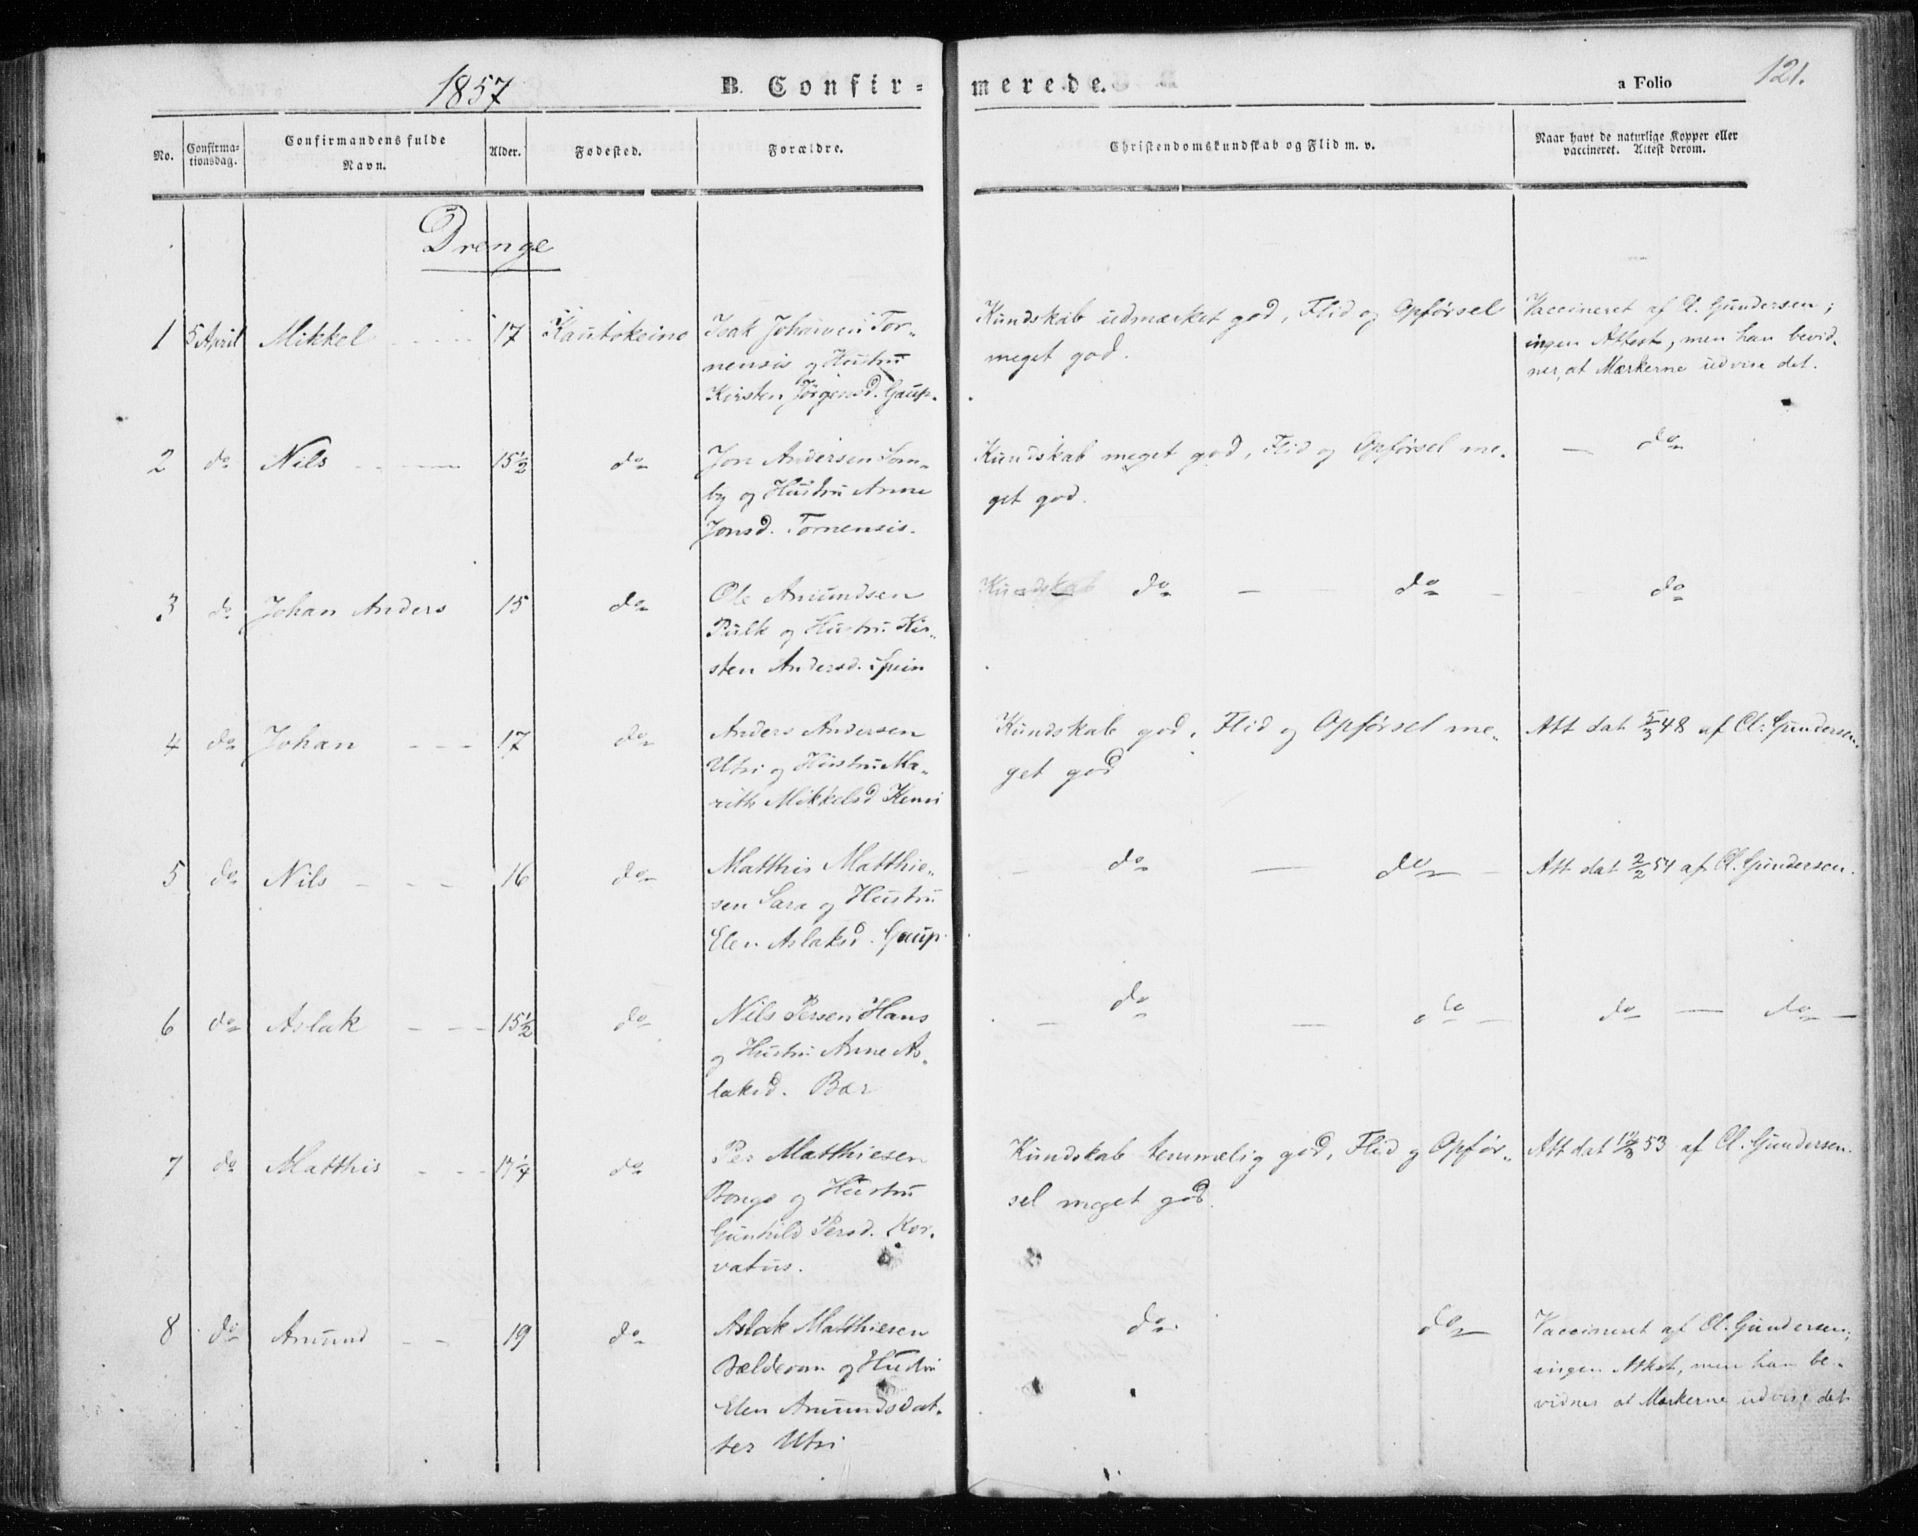 1857 B. Confir- merede. a Folio 121.
No. Confirma-tionsdag. Confirmandens fulde Navn. Alder. Fødested. Forældre. Christendomskundskab og Flid m. v. Naar havt de naturlige Kopper eller vaccineret. Attest derom.
Drenge
1 5 April Mikkel 17 Kautokeino Isak Johansen Tor- Kundskab udmærket god, Flid og Opførsel Vaccineret af Cl. Gundersen;
nensis og Hustru meget god. ingen Attest, men han bevid-
Kirsten Jørgensd. Gaup. ner, at Mærkerne udvise det.
2 do Nils 15½ do Jon Andersen Som- Kundskab meget god, Flid og Opførsel me- — do
by og Hustru Anne get god.
Jonsd. Tornensis.
3 do Johan Anders 15 do Ole Amundsen Kundskab do — do — do
Pulk og Hustru Kir-
sten Andersd. Spein
4 do Johan 17 do Anders Andersen Kundskab god, Flid og Opførsel me- Att dat 5/3 48 af Cl. Gundersen.
Utsi og Hustru Ma- get god
rith Mikkelsd Kemi
5 do Nils 16 do Matthis Matthie- — do — do — Att dat 2/2 54 af Cl. Gundersen.
sen Sara og Hustru
Elen Aslaksd. Gaup.
6 do Aslak 15½ do Nils Persen Hans — do — do — do — do —
og Hustru Anne As-
laksd. Bær
7 do Matthis 17¼ do Per Matthiesen Kundskab temmelig god, Flid og Opfør- Att dat 53 af Cl. Gundersen.
Bongo og Hustru sel meget god.
Gunhild Persd. Kor-
vatus.
8 do Amund 19 do Aslak Matthiesen do. do Vaccineret af Cl. Gundersen;
og Hustru ingen Attest, men han be-
Elen Amundsdat- vidner at Mærkerne udvise det
ter Utsi